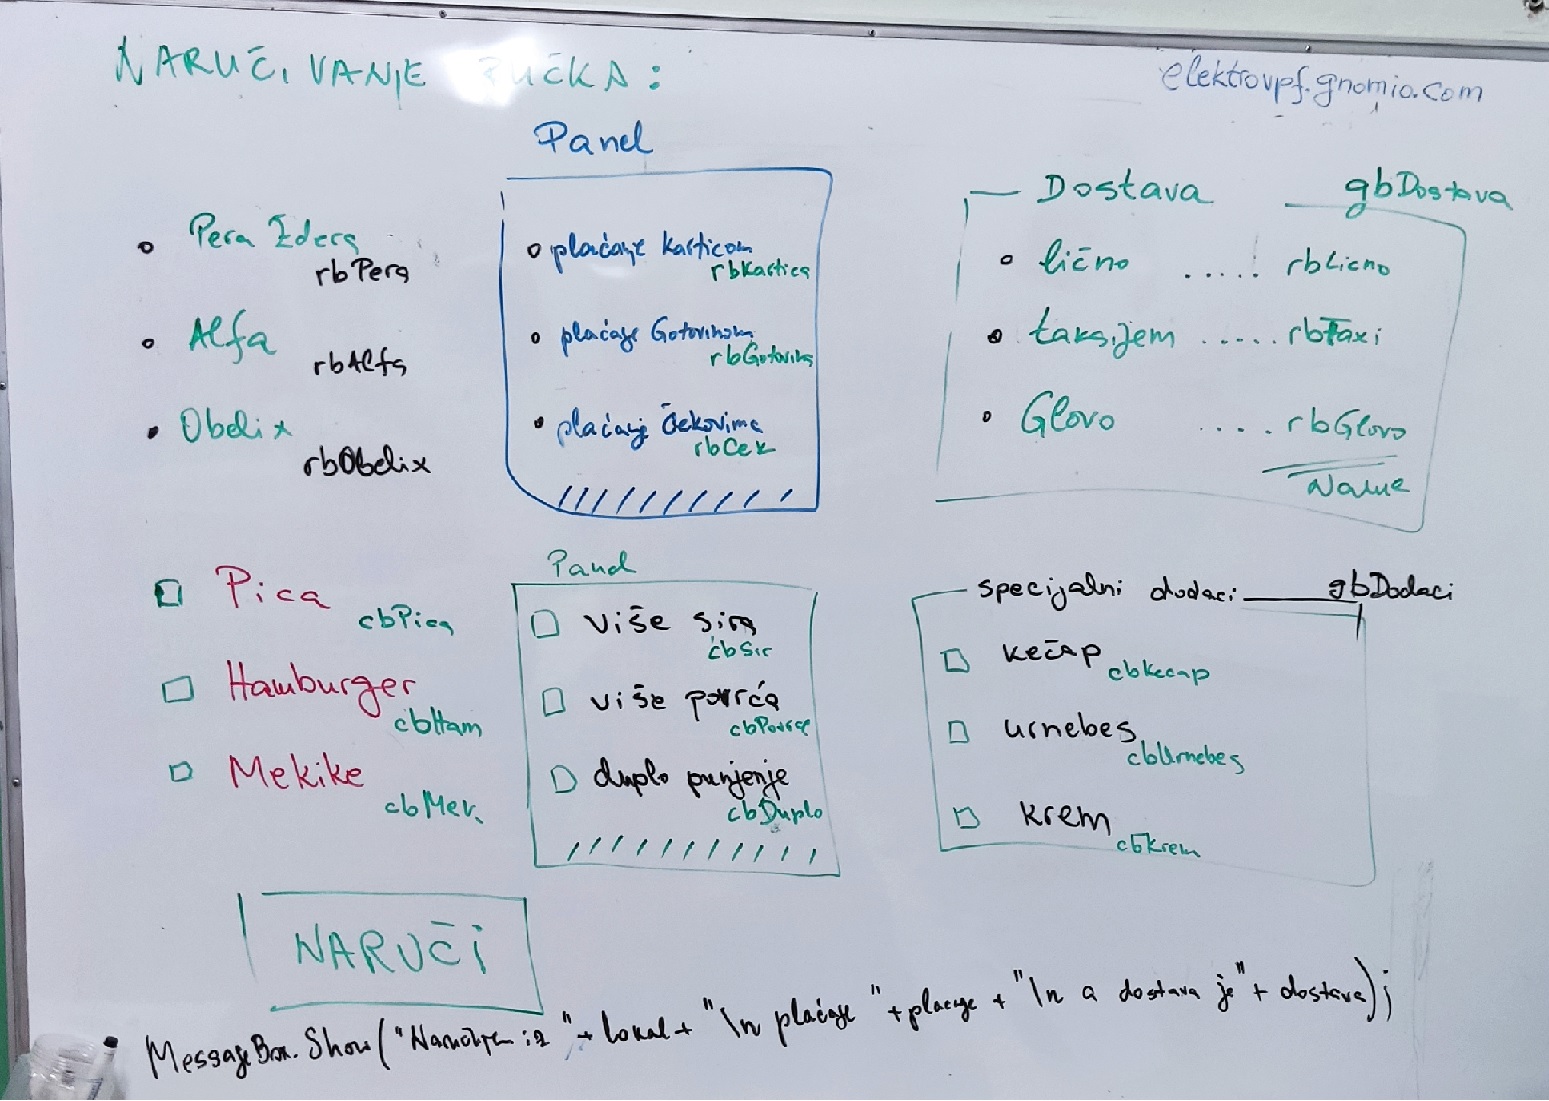 NARUČIVANJE RUČKA:
elektrovpf.gnomio.com
Panel
Pera Ždera
rbPera
Alfa
rbAlfa
Obelix
rbObelix
plaćanje karticom
rbKartica
plaćanje Gotovinom
rbGotovina
plaćanje Čekovima
rbCek
Dostava gbDostava
lično ..... rbLicno
taksijem ..... rbTaxi
Glovo .... rbGlovo
Name
Pica
cbPica
Hamburger
cbHam
Mekike
cbMek
Panel
više sira
cbSir
više povrća
cbPovrce
duplo punjenje
cbDuplo
specijalni dodaci gbDodaci
kečap
cbKecap
urnebes
cbUrnebes
krem
cbKrem
NARUČI
MessageBox.Show("Naručujem iz "+lokal+"\n plaćanje "+placanje+"\n a dostava je"+dostava);